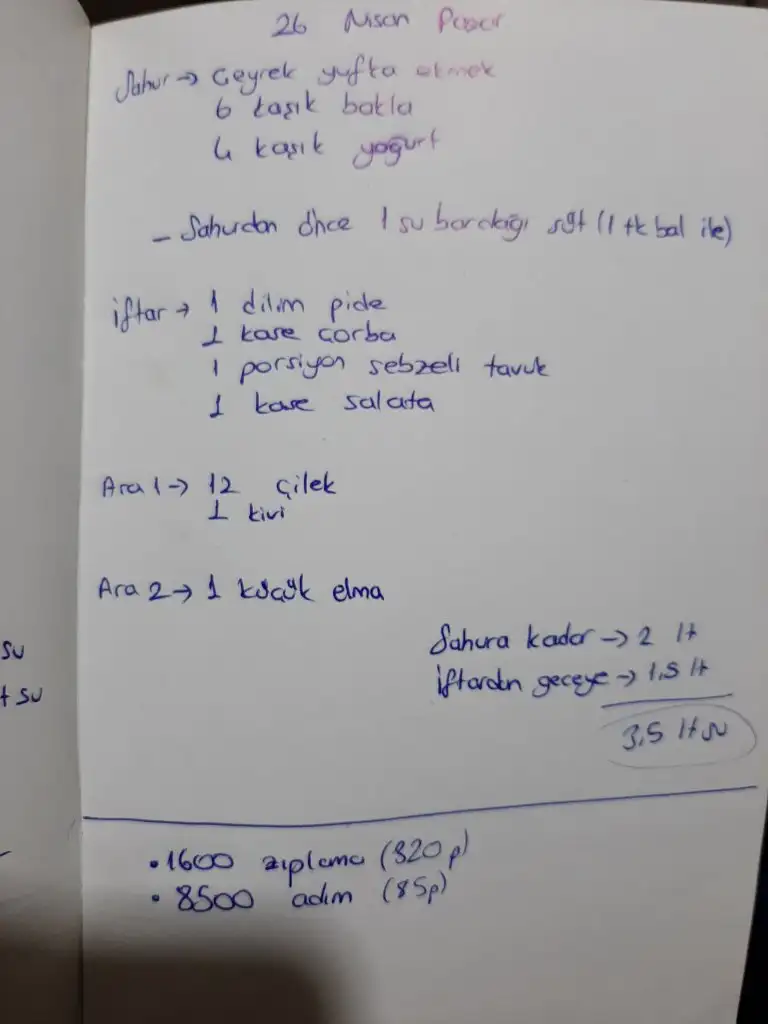 26 Nisan Pazar
Sahur → Çeyrek yufka ekmek
6 kaşık bakla
4 kaşık yoğurt
- Sahurdan önce 1 su bardağı süt (1 tk bal ile)
iftar → 1 dilim pide
1 kase çorba
1 porsiyon sebzeli tavuk
1 kase salata
Ara 1 → 12 çilek
1 kivi
Ara 2 → 1 küçük elma
su
t su
Sahura kadar → 2 lt
İftardan geceye → 1,5 lt
3,5 lt su
• 1600 zıplama (320 p)
• 8500 adım (85p)